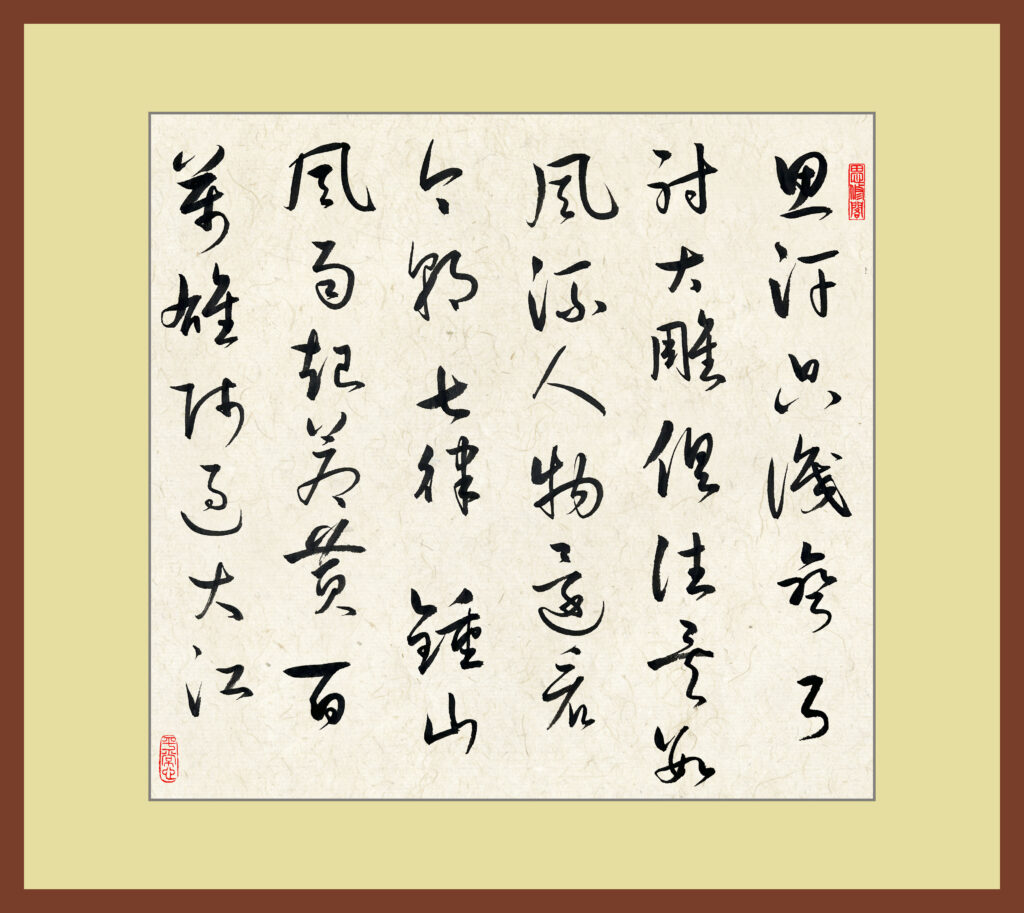 思修閣
思汗只識彎弓
射大雕俱往矣數
風流人物還看
今朝七律 鍾山
風雨起蒼黃百
萬雄師過大江
平常心